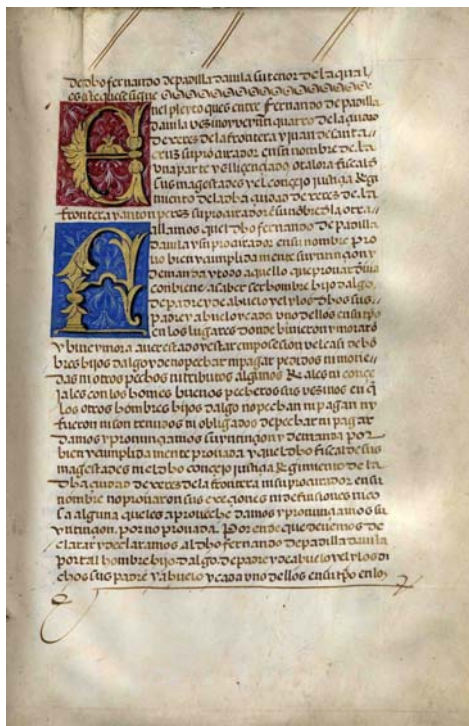 dedho fernando de padilla davila su tenor de la qual
es este que se sigue
En el pleyto ques entre fernando de padilla
davila vesino y veyntiquatro de la çiudad
de xeres de la frontera y juan de
su procurador en su nombre de la
una parte y el liçençiado otalora fiscal de
sus magestades y el conçejo justiçia Regi
miento de la dha çiudad de xeres de la
frontera y anton peres su procurador en su nõbre de la otra
Fallamos que el dho fernando de padilla
davila y su procurador en su nombre pro
vo bien y cumplidamente su yntinçion y
demanda y todo aquello que provar
conbiene a saber ser hombre hijo dalgo
de padre y de abuelo y el y los dhos sus
padre y abuelo y cada uno dellos en su tpõ
en los lugares donde bivieron y moraro
y bive y mora aver estado y estar en posesion vel casi de hõ
bres hijos dalgo y de no pechar ni pagar pedidos ni mone
das ni otros pechos ni tributos algunos Reales ni conçe
jales con los homes buenos pecheros sus vesinos en q̃
los otros hombres hijos dalgo no pechan ni pagan ny
fueron ni son tenudos ni obligados de pechar ni pagar
damos y pronunçiamos su yntinçion y demanda por
bien y cumplidamente provada y que el dho fiscal de sus
magestades ni el dho conçejo justiçia Regimiento de la
dha çiudad de xeres de la frontera ni su procurador en su
nombre no provaron sus exeçiones ni defensiones ni co
sa alguna que les aproveche damos y pronunçiamos su
yntinçion por no provada. Por ende que devemos de
clarar y declaramos al dho fernando de padilla davila
por tal hombre hijo dalgo de padre y de abuelo y el y los di
chos sus padre y abuelo y cada uno dellos en su tpõ en los